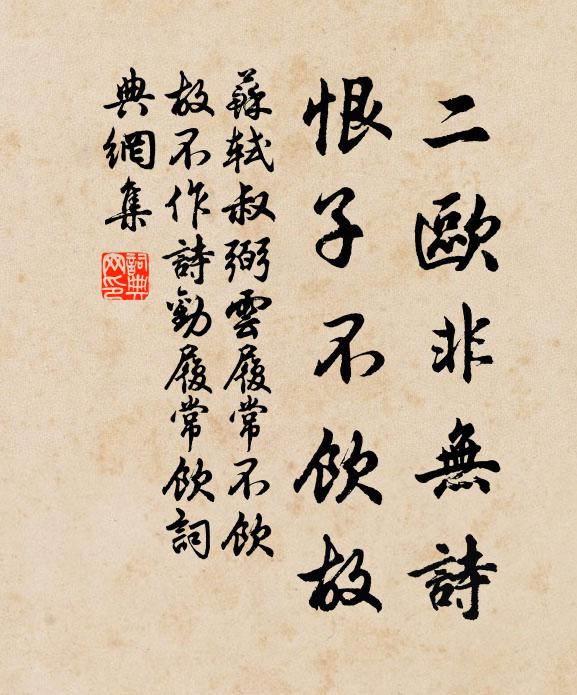 二歐非無詩
恨子不飲故
蘇軾叔弼雲履常不飲
故不作詩勸履常飲詞
典網集
詞典
网印